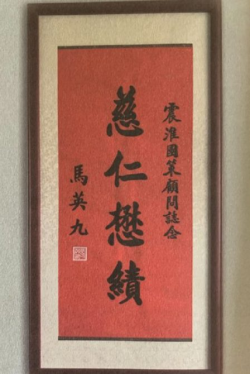 震淮國策顧問誌念
慈仁懋績
馬英九